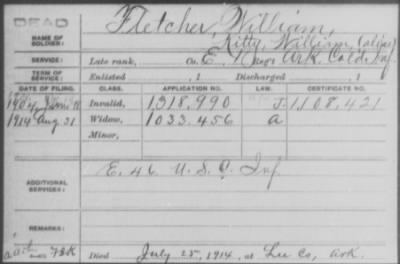 DEAD
NAME OF SOLDIER: Fletcher, William,
Kitty, William (alias)
SERVICE: Late rank, Co. E, 1 Reg't Ark. Cold. Inf.
TERM OF SERVICE: Enlisted , 1 Discharged , 1
DATE OF FILING. CLASS. APPLICATION NO. LAW. CERTIFICATE NO.
1904, Invalid, 1,318,990 J. 1,108,421
1914 Aug 31 Widow, 1033.456 a
Minor,
ADDITIONAL SERVICES: E. 46 U. S. C. Inf
REMARKS:
Died July 25, 1914, at Lee Co, Ark.